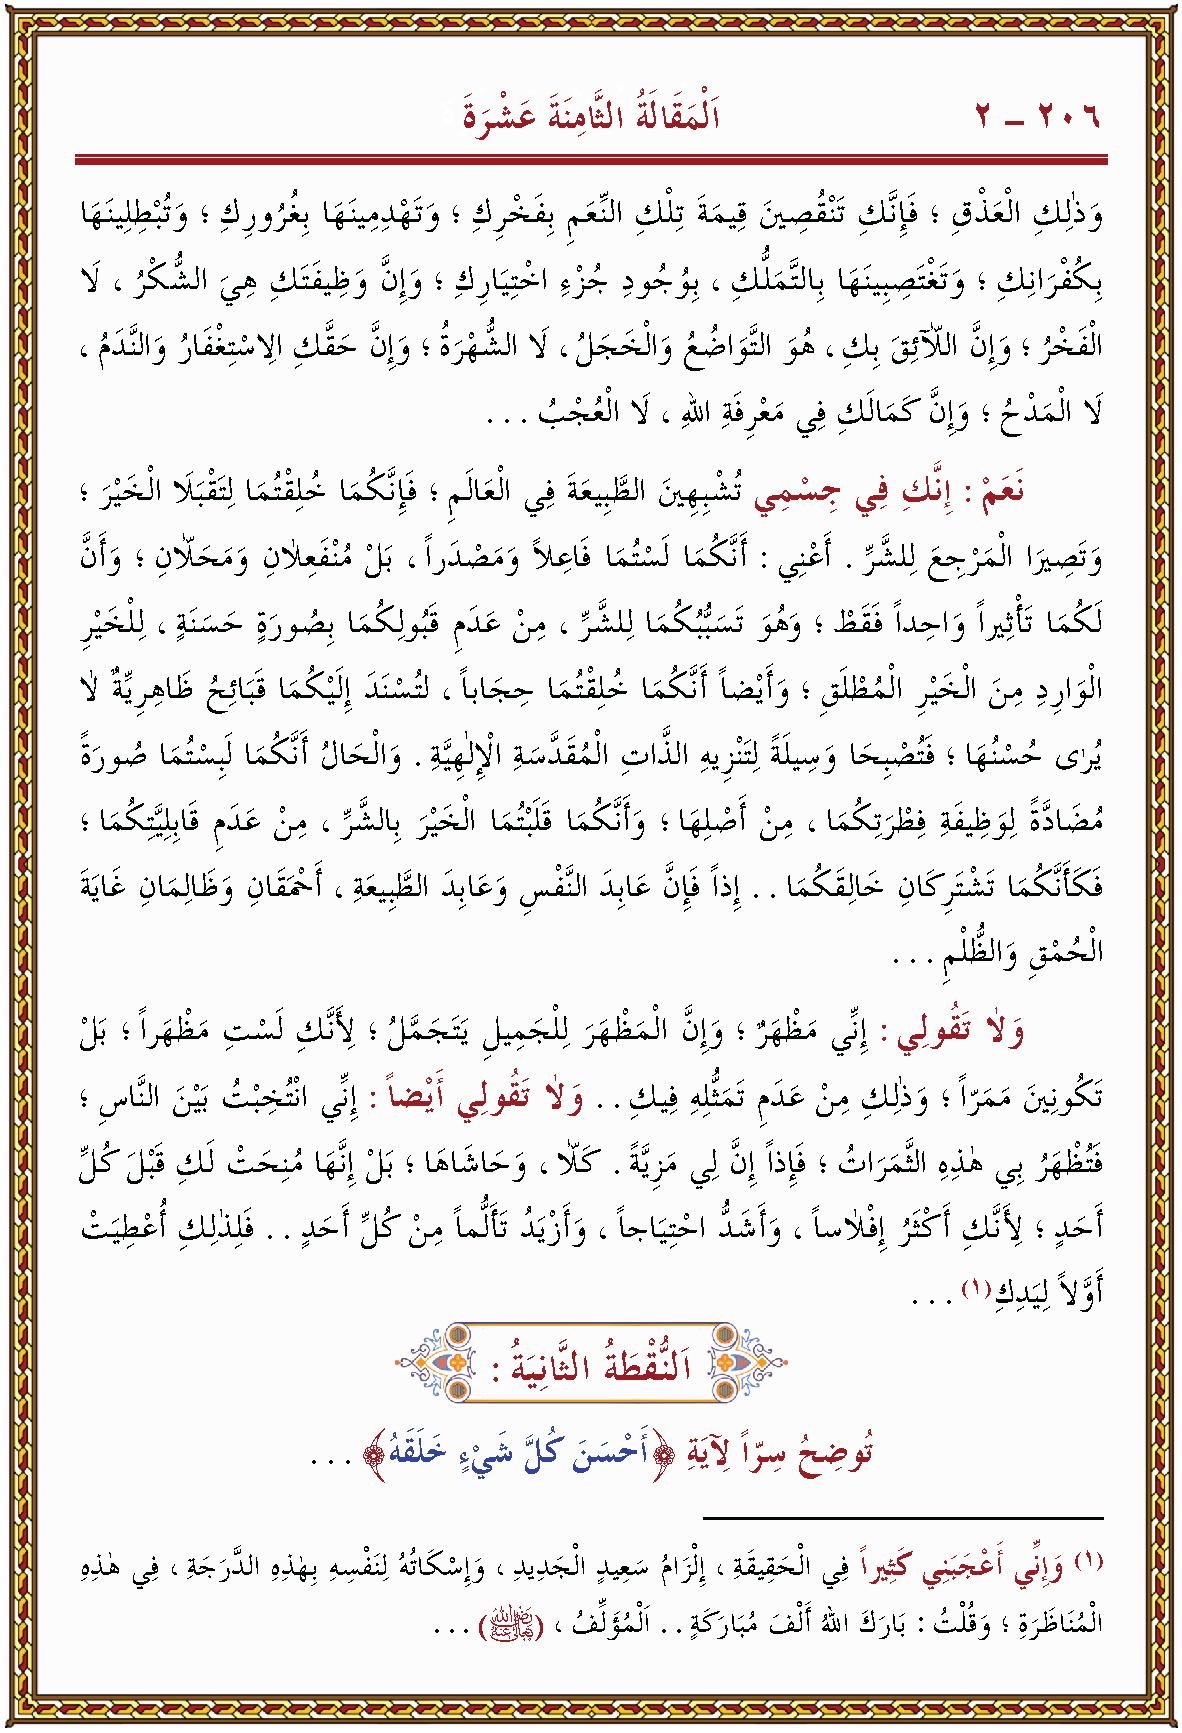 ٢٠٦ – ٢
اَلْمَقَالَةُ الثَّامِنَةَ عَشْرَةَ
وَذٰلِكِ الْعَذْقِ ؛ فَإِنَّكِ تَنْقُصِينَ قِيمَةَ تِلْكِ النِّعَمِ بِفَخْرِكِ ؛ وَتَهْدِمِينَهَا بِغُرُورِكِ ؛ وَتُبْطِلِينَهَا
بِكُفْرَانِكِ ؛ وَتَغْتَصِبِينَهَا بِالتَّمَلُّكِ ، بِوُجُودِ جُزْءِ اخْتِيَارِكِ ؛ وَإِنَّ وَظِيفَتَكِ هِيَ الشُّكْرُ ، لَا
الْفَخْرُ ؛ وَإِنَّ اللَّآئِقَ بِكِ ، هُوَ التَّوَاضُعُ وَالْخَجَلُ ، لَا الشُّهْرَةُ ؛ وَإِنَّ حَقَّكِ الِاسْتِغْفَارُ وَالنَّدَمُ ،
لَا الْمَدْحُ ؛ وَإِنَّ كَمَالَكِ فِي مَعْرِفَةِ اللهِ ، لَا الْعُجْبُ . . .
نَعَمْ : إِنَّكِ فِي جِسْمِي تُشْبِهِينَ الطَّبِيعَةَ فِي الْعَالَمِ ؛ فَإِنَّكُمَا خُلِقْتُمَا لِتَقْبَلَا الْخَيْرَ ؛
وَتَصِيرَا الْمَرْجِعَ لِلشَّرِّ . أَعْنِي : أَنَّكُمَا لَسْتُمَا فَاعِلاً وَمَصْدَراً ، بَلْ مُنْفَعِلَانِ وَمَحَلَّانِ ؛ وَأَنَّ
لَكُمَا تَأْثِيراً وَاحِداً فَقَطْ ؛ وَهُوَ تَسَبُّبُكُمَا لِلشَّرِّ ، مِنْ عَدَمِ قَبُولِكُمَا بِصُورَةٍ حَسَنَةٍ ، لِلْخَيْرِ
الْوَارِدِ مِنَ الْخَيْرِ الْمُطْلَقِ ؛ وَأَيْضاً أَنَّكُمَا خُلِقْتُمَا حِجَاباً ، لتُسْنَدَ إِلَيْكُمَا قَبَائِحُ ظَاهِرِيَّةٌ لَا
يُرٰى حُسْنُهَا ؛ فَتُصْبِحَا وَسِيلَةً لِتَنْزِيهِ الذَّاتِ الْمُقَدَّسَةِ الْإِلٰهِيَّةِ . وَالْحَالُ أَنَّكُمَا لَبِسْتُمَا صُورَةً
مُضَادَّةً لِوَظِيفَةِ فِطْرَتِكُمَا ، مِنْ أَصْلِهَا ؛ وَأَنَّكُمَا قَلَبْتُمَا الْخَيْرَ بِالشَّرِّ ، مِنْ عَدَمِ قَابِلِيَّتِكُمَا ؛
فَكَأَنَّكُمَا تَشْتَرِكَانِ خَالِقَكُمَا . . إِذاً فَإِنَّ عَابِدَ النَّفْسِ وَعَابِدَ الطَّبِيعَةِ ، أَحْمَقَانِ وَظَالِمَانِ غَايَةَ
الْحُمْقِ وَالظُّلْمِ . . .
وَلَا تَقُولِي : إِنِّي مَظْهَرٌ ؛ وَإِنَّ الْمَظْهَرَ لِلْجَمِيلِ يَتَجَمَّلُ ؛ لِأَنَّكِ لَسْتِ مَظْهَراً ؛ بَلْ
تَكُونِينَ مَمَرّاً ؛ وَذٰلِكِ مِنْ عَدَمِ تَمَثُّلِهِ فِيكِ . . وَلَا تَقُولِي أَيْضاً : إِنِّي انْتُخِبْتُ بَيْنَ النَّاسِ ؛
فَتُظْهَرُ بِي هٰذِهِ الثَّمَرَاتُ ؛ فَإِذاً إِنَّ لِي مَزِيَّةً . كَلَّا ، وَحَاشَاهَا ؛ بَلْ إِنَّهَا مُنِحَتْ لَكِ قَبْلَ كُلِّ
أَحَدٍ ؛ لِأَنَّكِ أَكْثَرُ إِفْلَاساً ، وَأَشَدُّ احْتِيَاجاً ، وَأَزْيَدُ تَأَلُّماً مِنْ كُلِّ أَحَدٍ . . فَلِذٰلِكِ أُعْطِيَتْ
أَوَّلاً لِيَدِكِ(١) . . .
اَلنُّقْطَةُ الثَّانِيَةُ :
تُوضِحُ سِرّاً لِآيَةِ ﴿أَحْسَنَ كُلَّ شَيْءٍ خَلَقَهُ﴾ . . .
(١) وَإِنِّي أَعْجَبَنِي كَثِيراً فِي الْحَقِيقَةِ ، إِلْزَامُ سَعِيدٍ الْجَدِيدِ ، وَإِسْكَاتُهُ لِنَفْسِهِ بِهٰذِهِ الدَّرَجَةِ ، فِي هٰذِهِ
الْمُنَاظَرَةِ ؛ وَقُلْتُ : بَارَكَ اللهُ أَلْفَ مُبَارَكَةٍ . . اَلْمُؤَلِّفُ ، (رَضِيَ اللهُ عَنْهُ) . . .